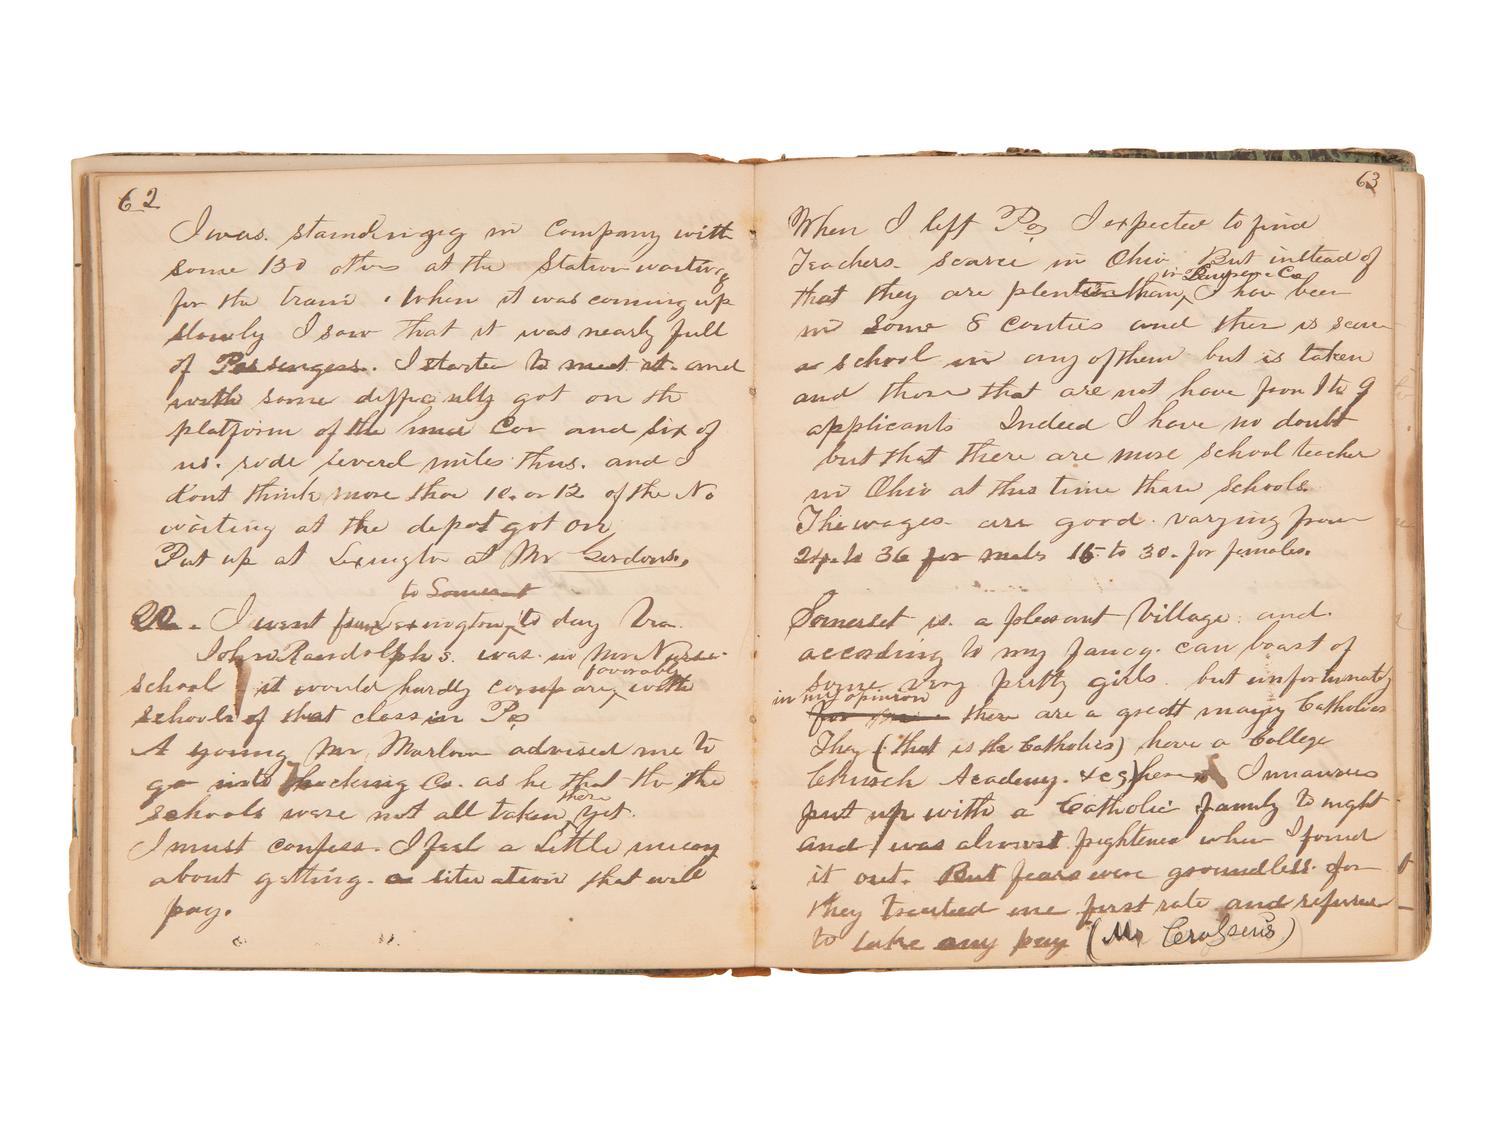 62
I was. standinging in Company with
some 130 othes at the Station waiting
for the train. When it was coming up
slowly I saw that it was nearly full
of Passengers. I started to meet it and
with some difficulty got on the
platform of the Car and six of
us. rode several miles thus. and I
dont think more than 10. or 12. of the No
waiting at the depot got on
Put up at Lexington at Mr Gordons.
to Somerset
22. I went from Lexington to day Via.
John Randolphs. was in Mr
favorably
school it would hardly compare, with
schools of that class in Pa
A young Mr Marlow advised me to
go into Hocking Co. as he that tho the
there
schools were not all taken, yet.
I must confess. I feel a little uneasy
about getting. a situation that will
pay.
63
When I left Pa I expected to find
Teachers. scarce in Ohio But instead of
in Co
that they are than, I hav been
in some 8 conties and ther is scarc
a school in any of them but is taken
and those that are not have from 1 to 9
applicants Indeed I have no doubt
but that there are more school teacher
in Ohio at this time than schools.
The wages are good. varying from
24. to 36 for males 15 to 30. for females.
Somerset is a pleasant Village. and.
according to my fancy. can boast of
some very pretty girls. but unfortunately
in my opinion
there are a greatt many Catholics
They (that is the Catholics) have a College
Church Academy. &c &c) here. I
put up with a Catholic family to night
and I was almost frightened when I found
it out. But fears were groundless. for
they treated me first rate and refused
to take any pay (Mr)